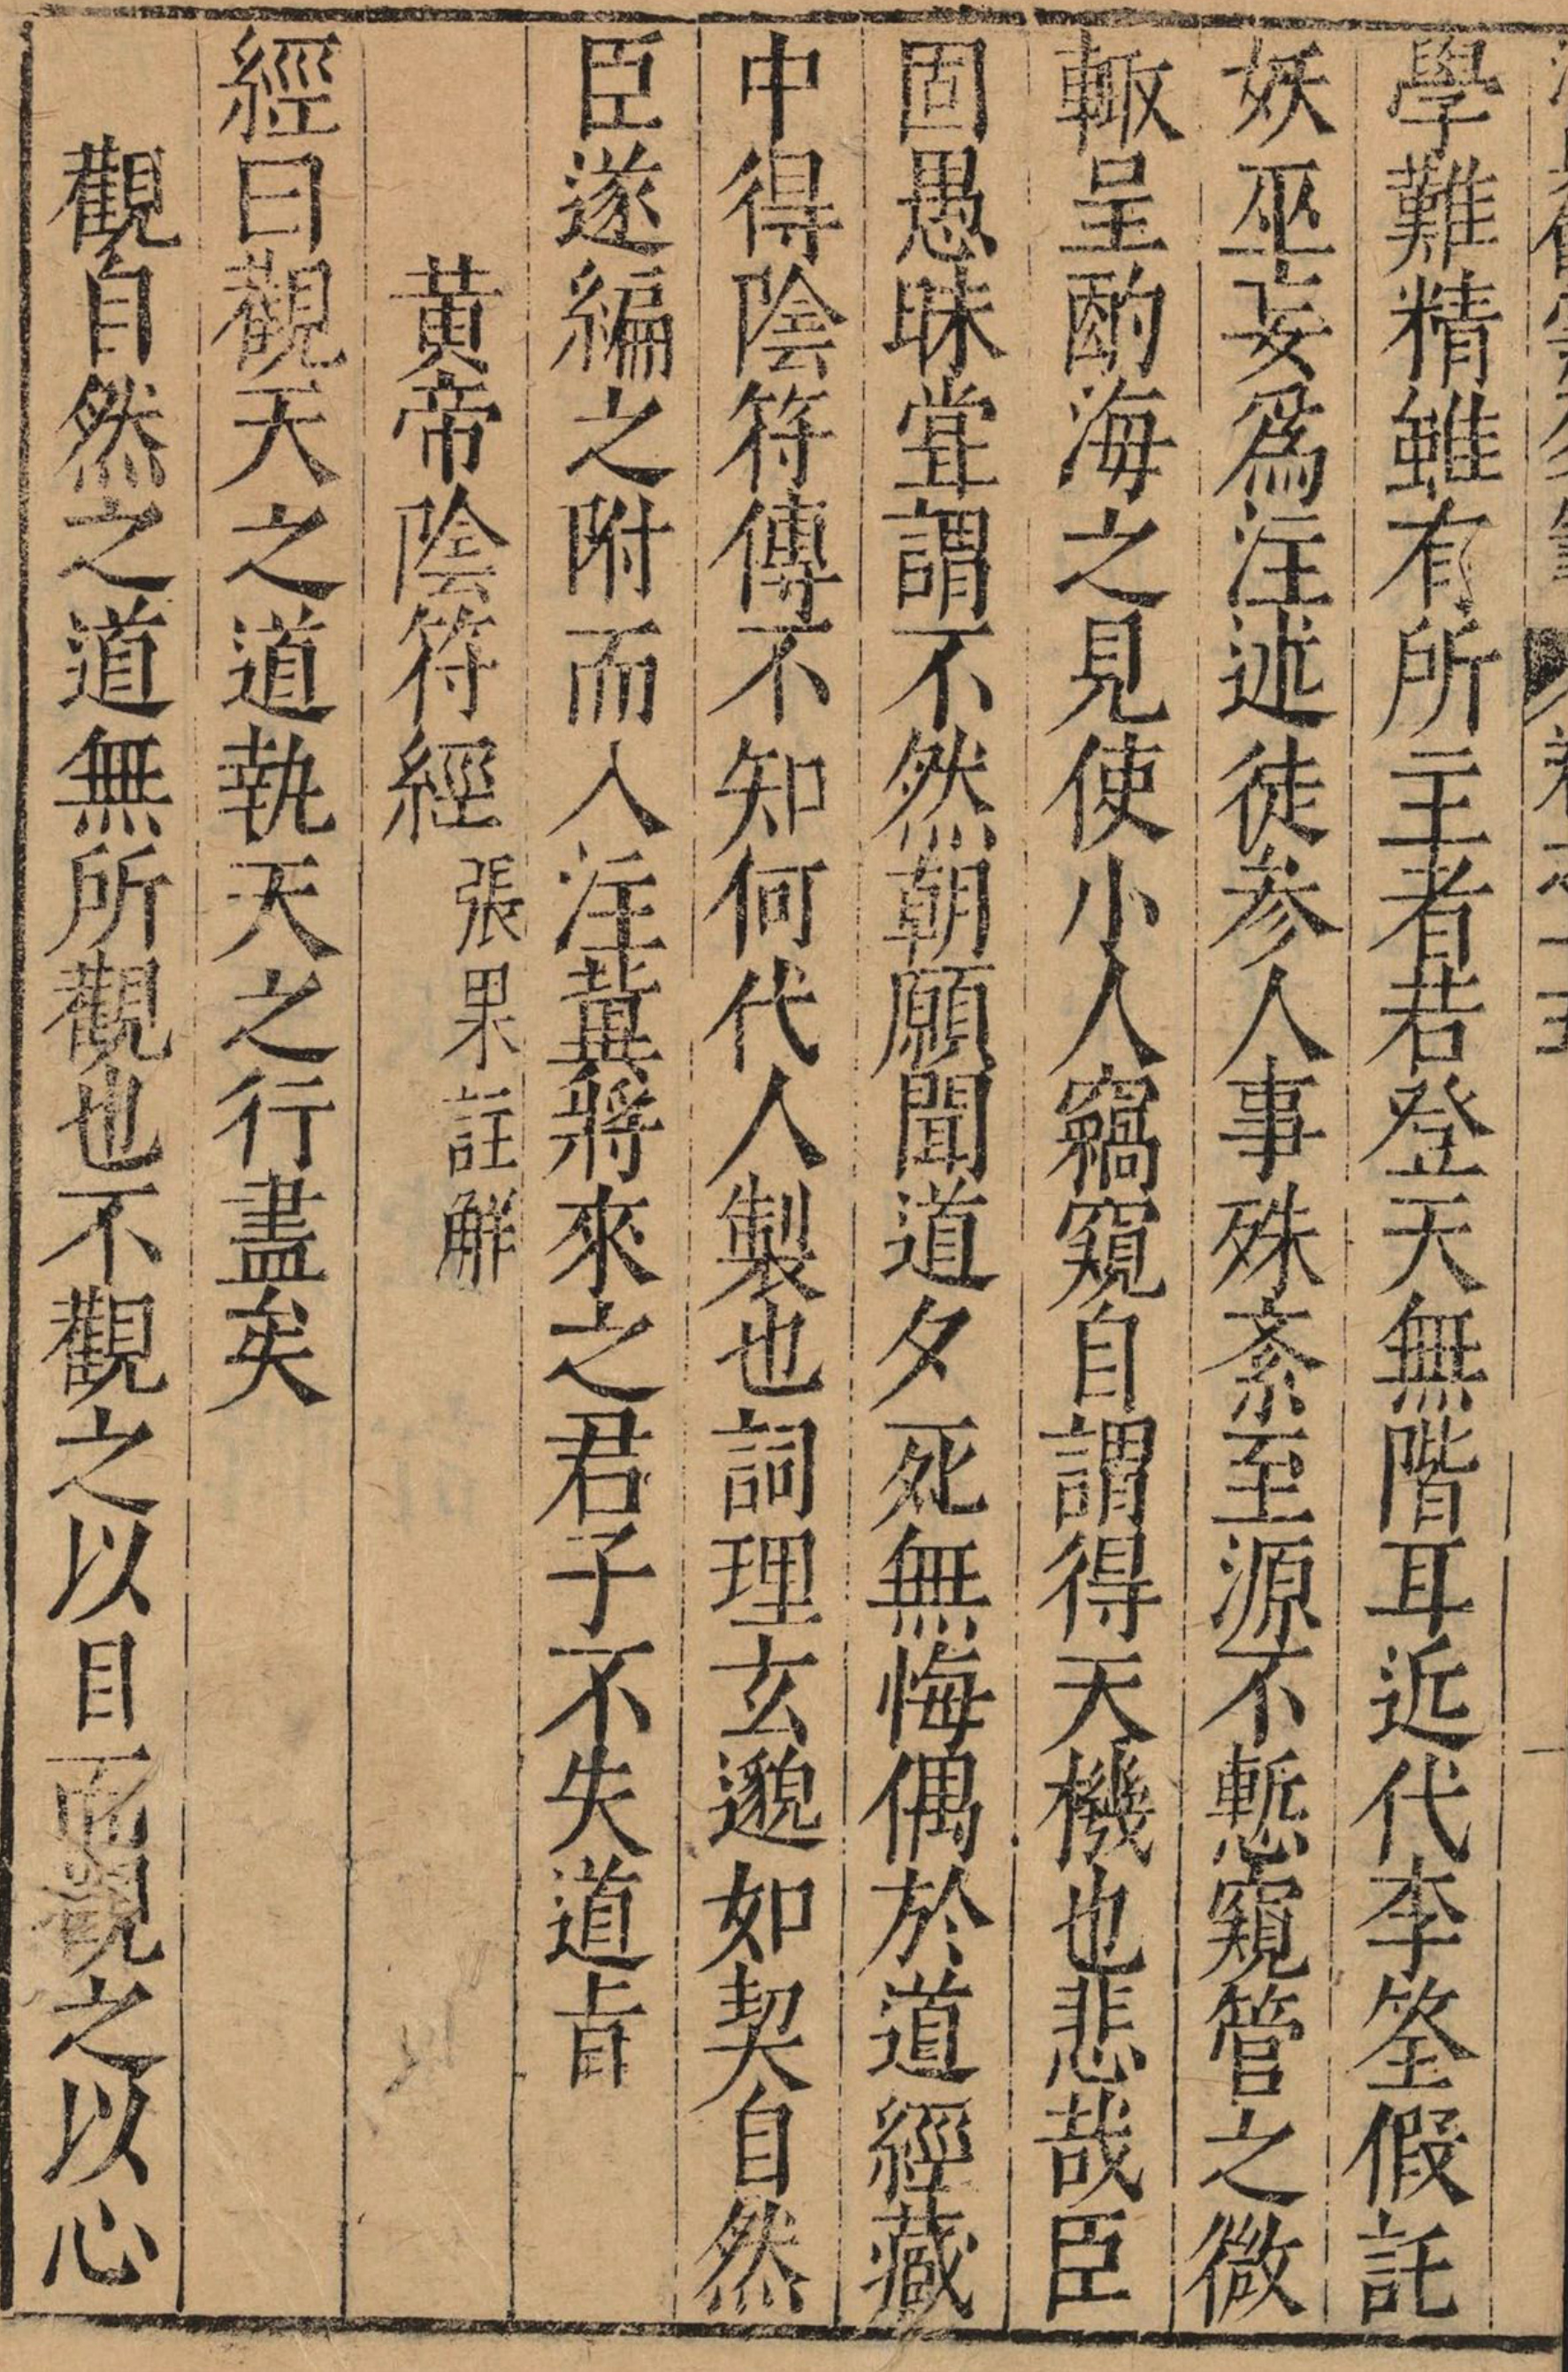 學難精雖有所主者若登天無階耳近代李筌假託
妖巫妄爲注述徒參人事殊紊至源不慙窺管之微
輙呈酌海之見使小人竊窺自謂得天機也悲哉臣
固愚昧甞謂不然朝願聞道夕死無悔偶於道經藏
中得陰符傳不知何代人製也詞理玄邈如契自然
臣遂編之附而入注冀將來之君子不失道旨
黃帝陰符經 張果註觧
經曰觀天之道執天之行盡矣
觀自然之道無所觀也不觀之以目而觀之以心